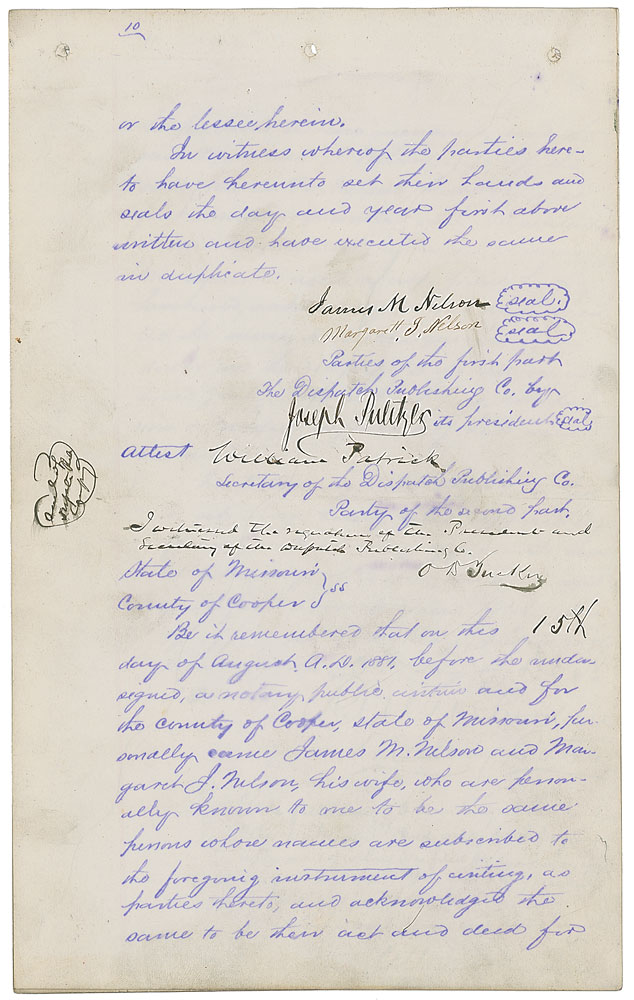 10
or the lessee herein.
In witness whereof the parties here-
to have hereunto set their hands and
seals the day and year first above
written and have executed the same
in duplicate.
James M Nelson seal.
Margarett J. Nelson seal
Parties of the first part
The Dispatch Publishing Co. by
Joseph Pulitzer its president seal
Attest William Patrick
Secretary of the Dispatch Publishing Co.
Party of the second part.
I witnessed the signatures of the President and
Secretary of the Dispatch Publishing Co.
State of Missouri
County of Cooper } ss
Be it remembered that on this 15th
day of August, A.D. 1881, before the under-
signed, a notary public within and for
the county of Cooper, state of Missouri, per-
sonally came James M. Nelson and Mar-
garet J. Nelson, his wife, who are person-
ally known to me to be the same
persons whose names are subscribed to
the foregoing instrument of writing, as
parties hereto, and acknowledged the
same to be their act and deed for